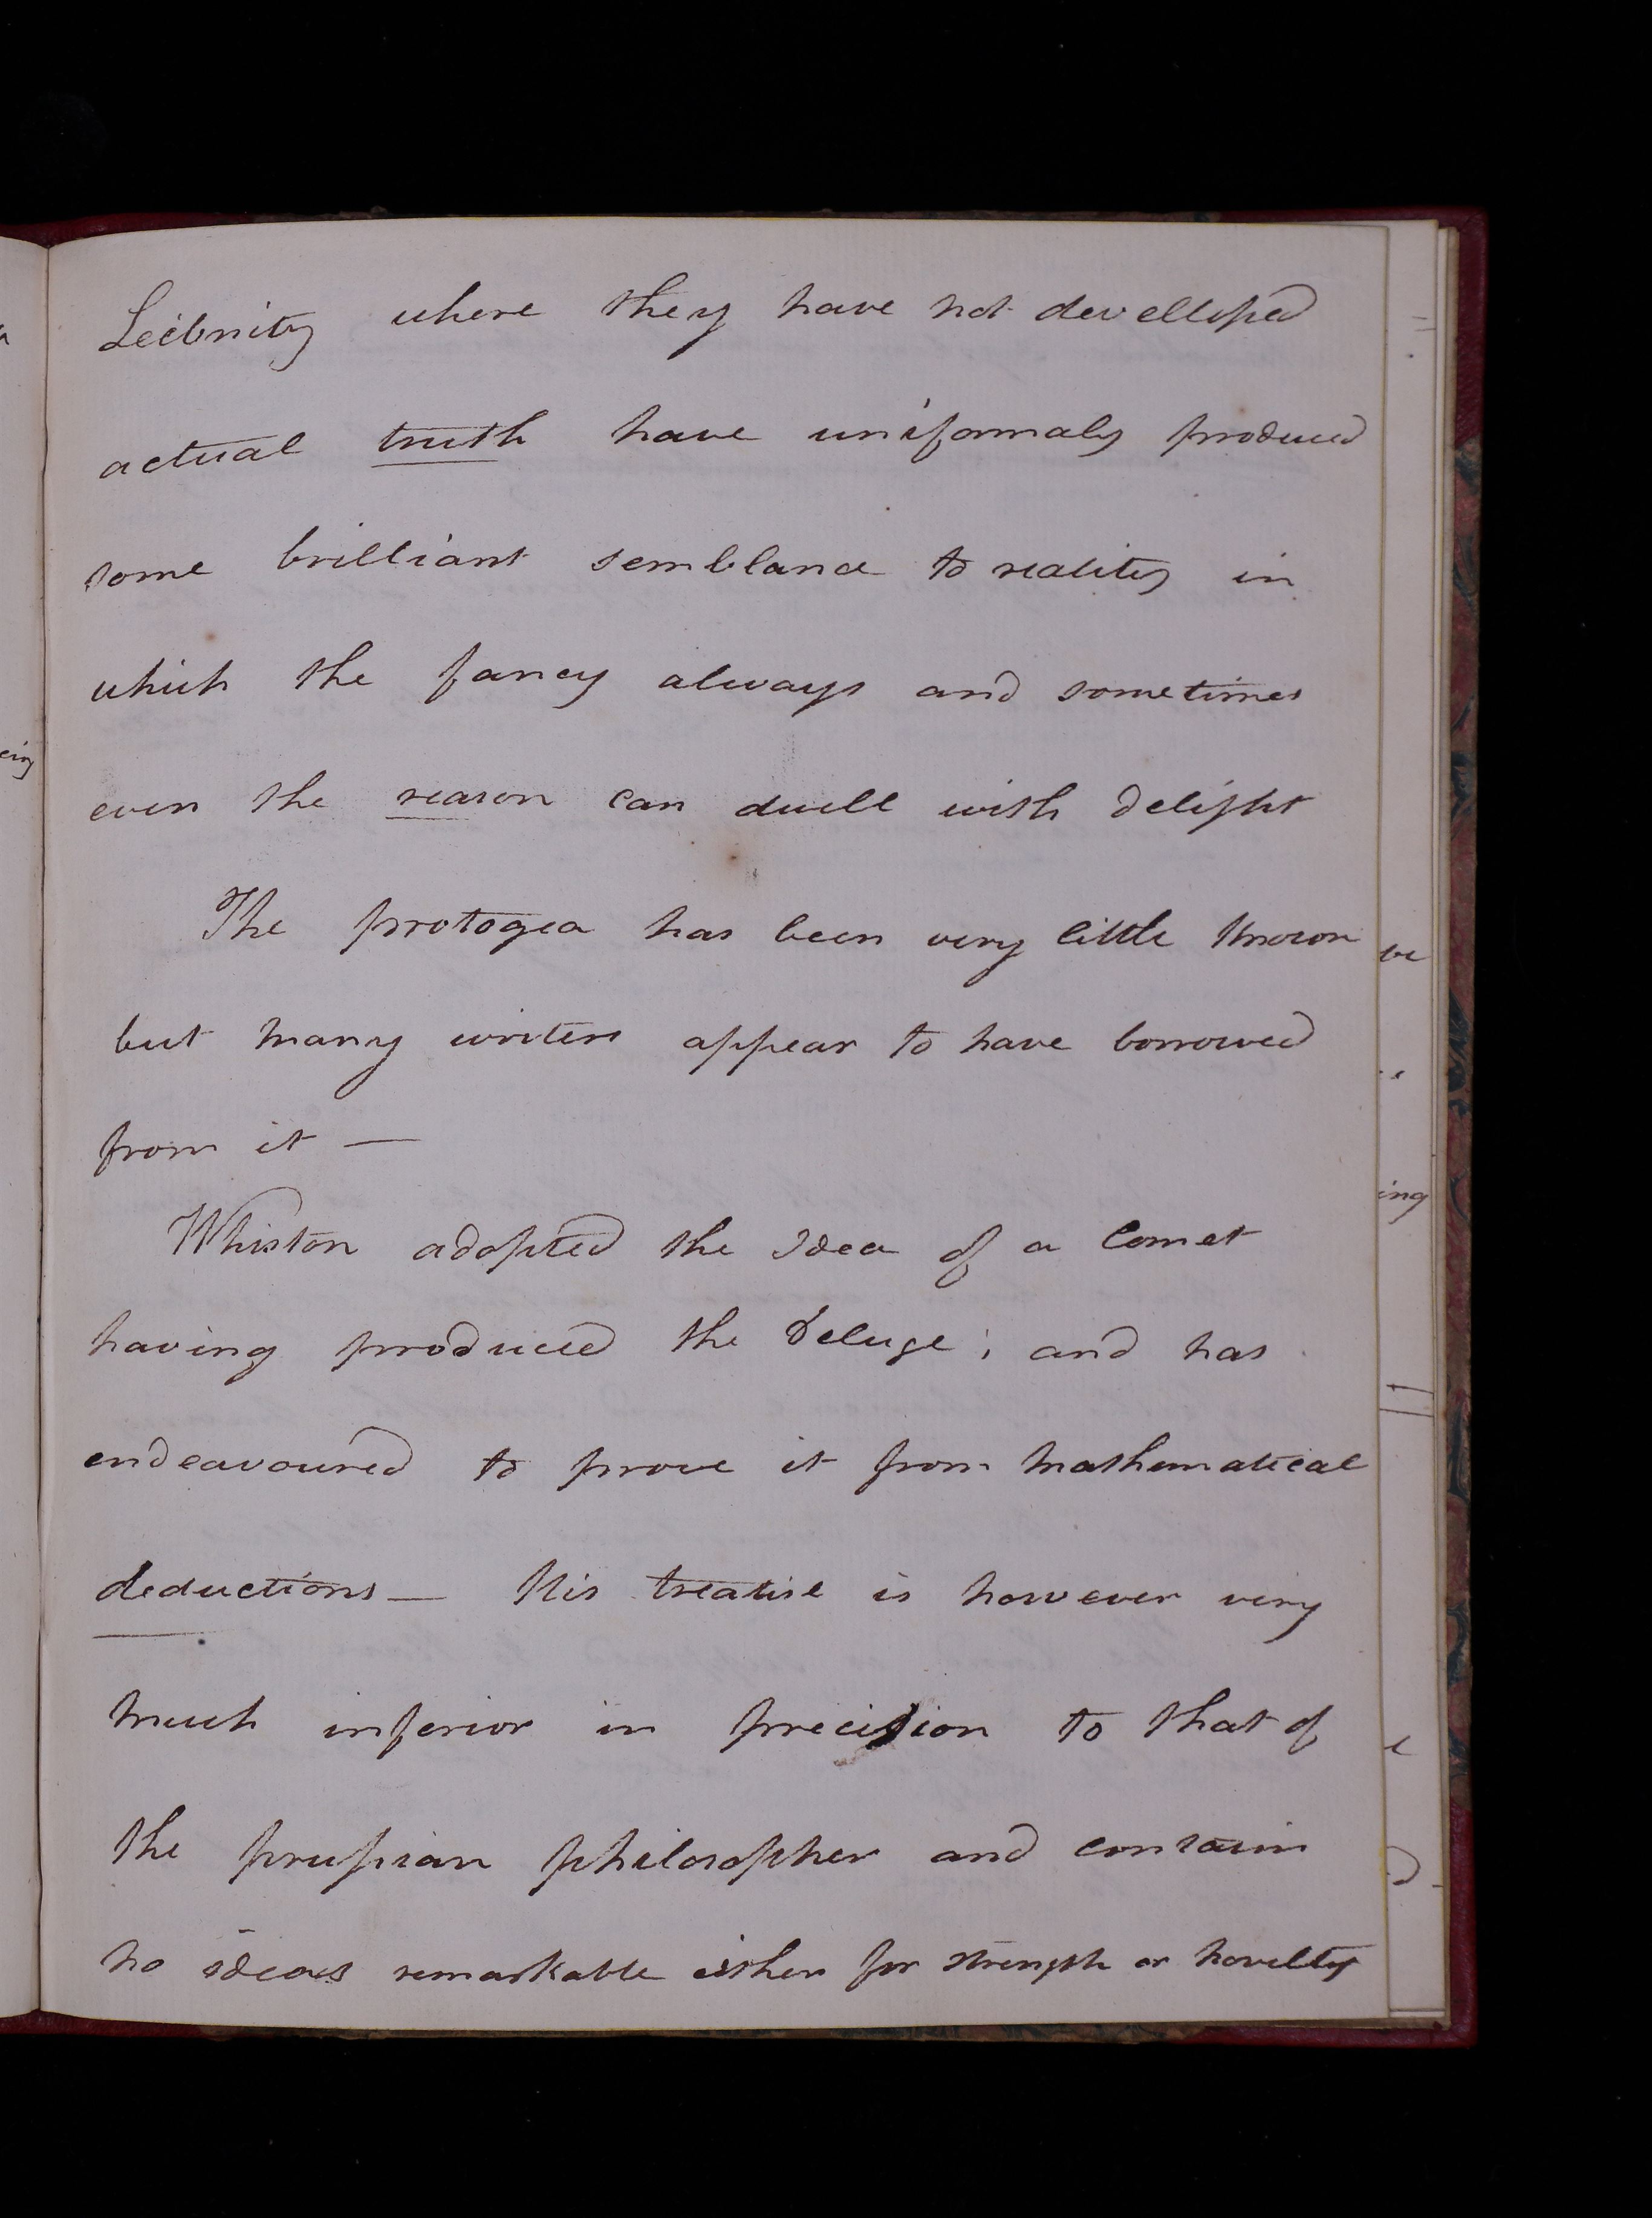 Leibnitz where they have not developed
actual truth have uniformaly produced
some brilliant semblance to reality in
which the fancy always and sometimes
even the reason can dwell with delight
The protogea has been very little known
but many writers appear to have borrowed
from it —
Whiston adopted the Idea of a Comet
having produced the deluge; and has
endeavoured to prove it from mathematical
deductions — His treatise is however very
much inferior in precision to that of
the prussian philosopher and contain
no ideas remarkable either for strength or novelty